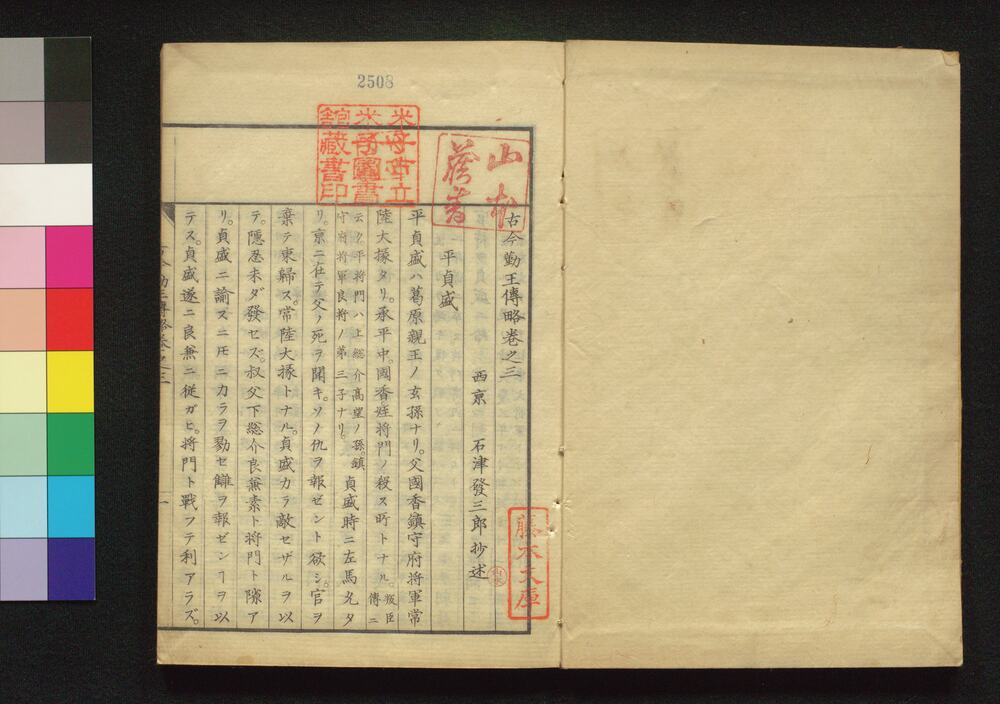 2508
米子市立
米子圖書
館藏書印
山本
蔵書
古今勤王傳略卷之三
西京 石津發三郎抄述
藤本文庫
平貞盛
平貞盛ハ葛原親王ノ玄孫ナリ。父國香鎮守府將軍常
陸大掾タリ。承平中。國香姪将門ノ殺ス所トナル。叛臣傳ニ
云ク平将門ハ上総介高望ノ孫。鎮守府将軍良将ノ第三子ナリ。貞盛時ニ左馬允タ
リ。京ニ在テ父ノ死ヲ聞キ。ソノ仇ヲ報ゼント欲シ。官ヲ
棄テ東歸ス。常陸大掾トナル。貞盛力ラ敵セザルヲ以
テ。隠忍未ダ發セズ。叔父下総介良兼素ト将門ト隙ア
リ。貞盛ニ諭スニ𪜈ニ力ラヲ勠セ讎ヲ報ゼンヿヲ以
テス。貞盛遂ニ良兼ニ従ガヒ。将門ト戰フテ利アラズ。
古今勤王傳略卷之三
一